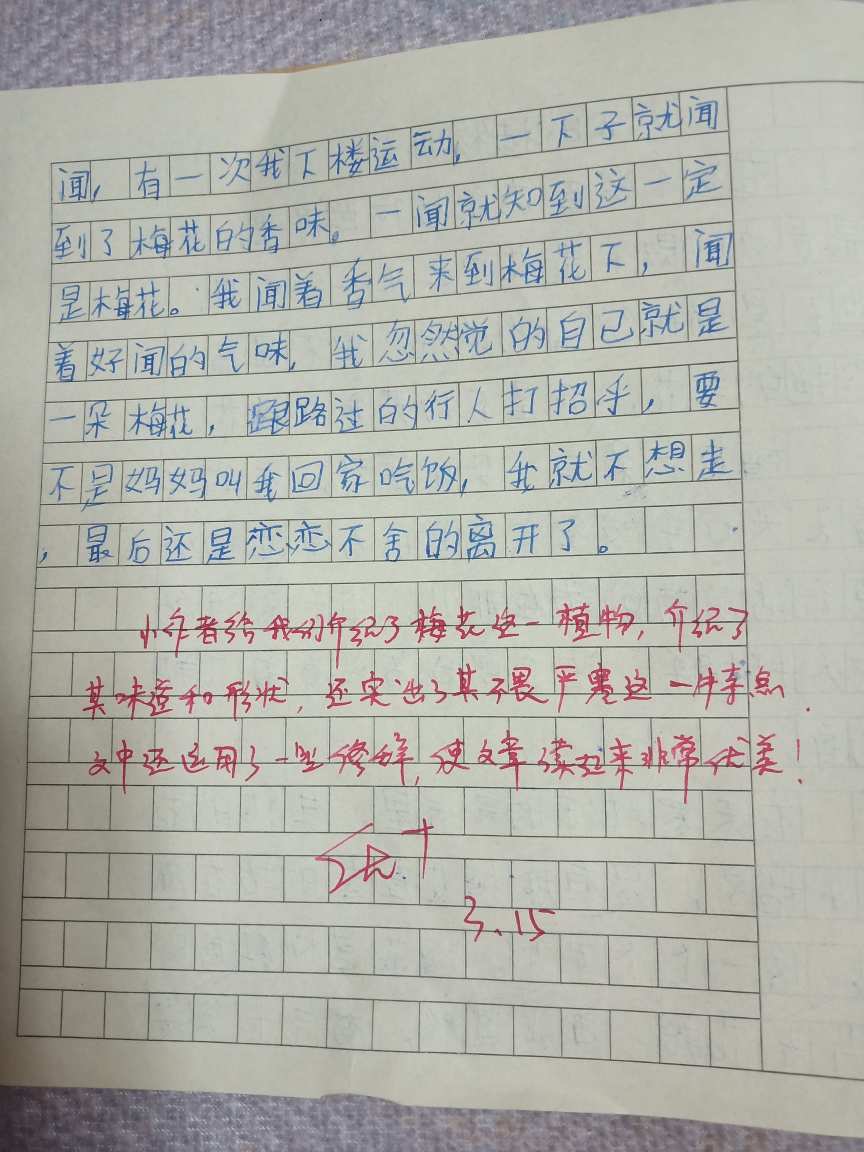 闻，有一次我下楼运动，一下子就闻
到了梅花的香味，一闻就知到这一定
是梅花。我闻着香气来到梅花下，闻
着好闻的气味，我忽然觉的自己就是
一朵梅花，跟路过的行人打招乎，要
不是妈妈叫我回家吃饭，我就不想走
，最后还是恋恋不舍的离开了。
小作者给我们介绍了梅花这一植物，介绍了
其味道和形状，还突出了其不畏严寒这一特点．
文中还运用了一些修辞，使文章读起来非常优美！
3.15